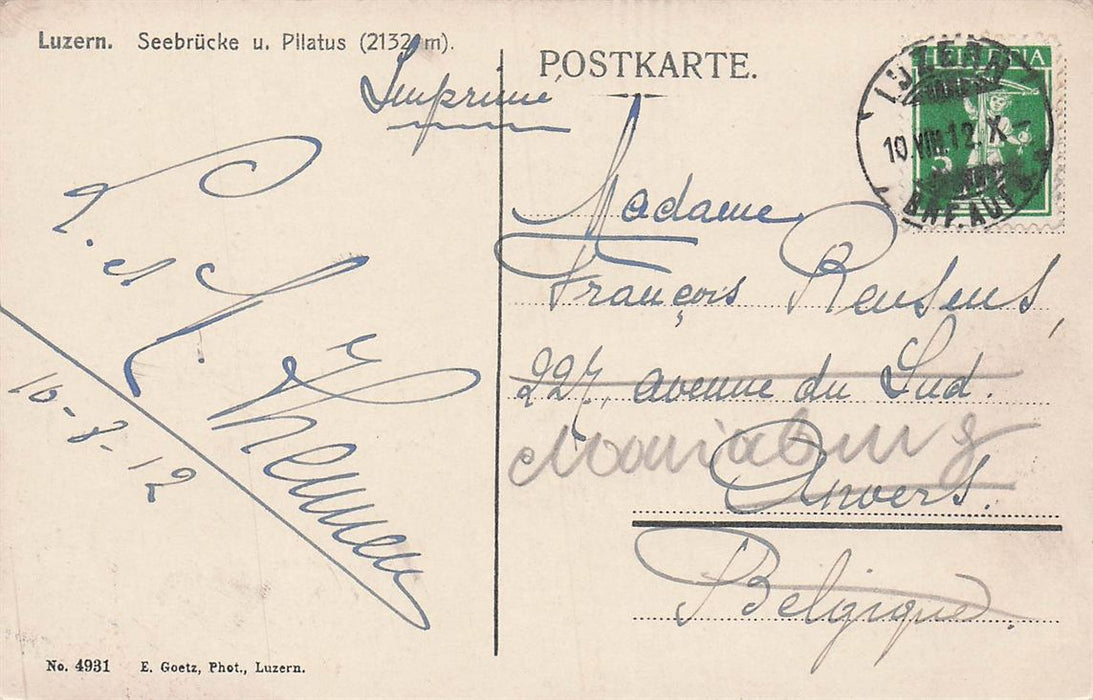 Luzern. Seebrücke u. Pilatus (2132 m).
POSTKARTE.
Imprimé
HELVETIA
5
LUZERN
10.VIII.12. X
Madame
François Reusens,
227, avenue du Sud.
Mariaburg
Anvers.
Belgique.
10-8-12
No. 4931 E. Goetz, Phot., Luzern.